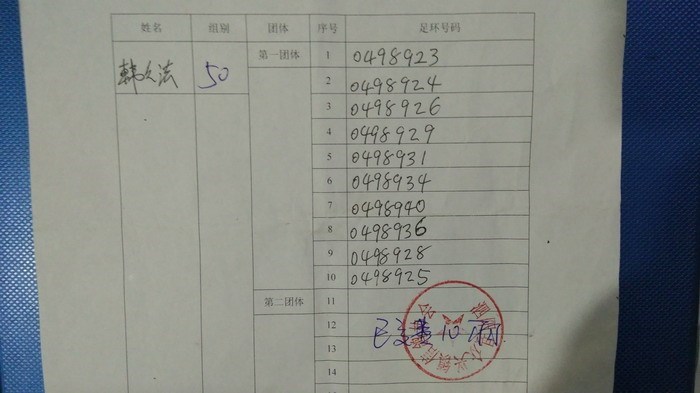 姓名 组别 团体 序号 足环号码
韩久法 50 第一团体 1 0498923
2 0498924
3 0498926
4 0498929
5 0498931
6 0498934
7 0498940
8 0498936
9 0498928
10 0498925
第二团体 11
12 已交费10羽
13
14